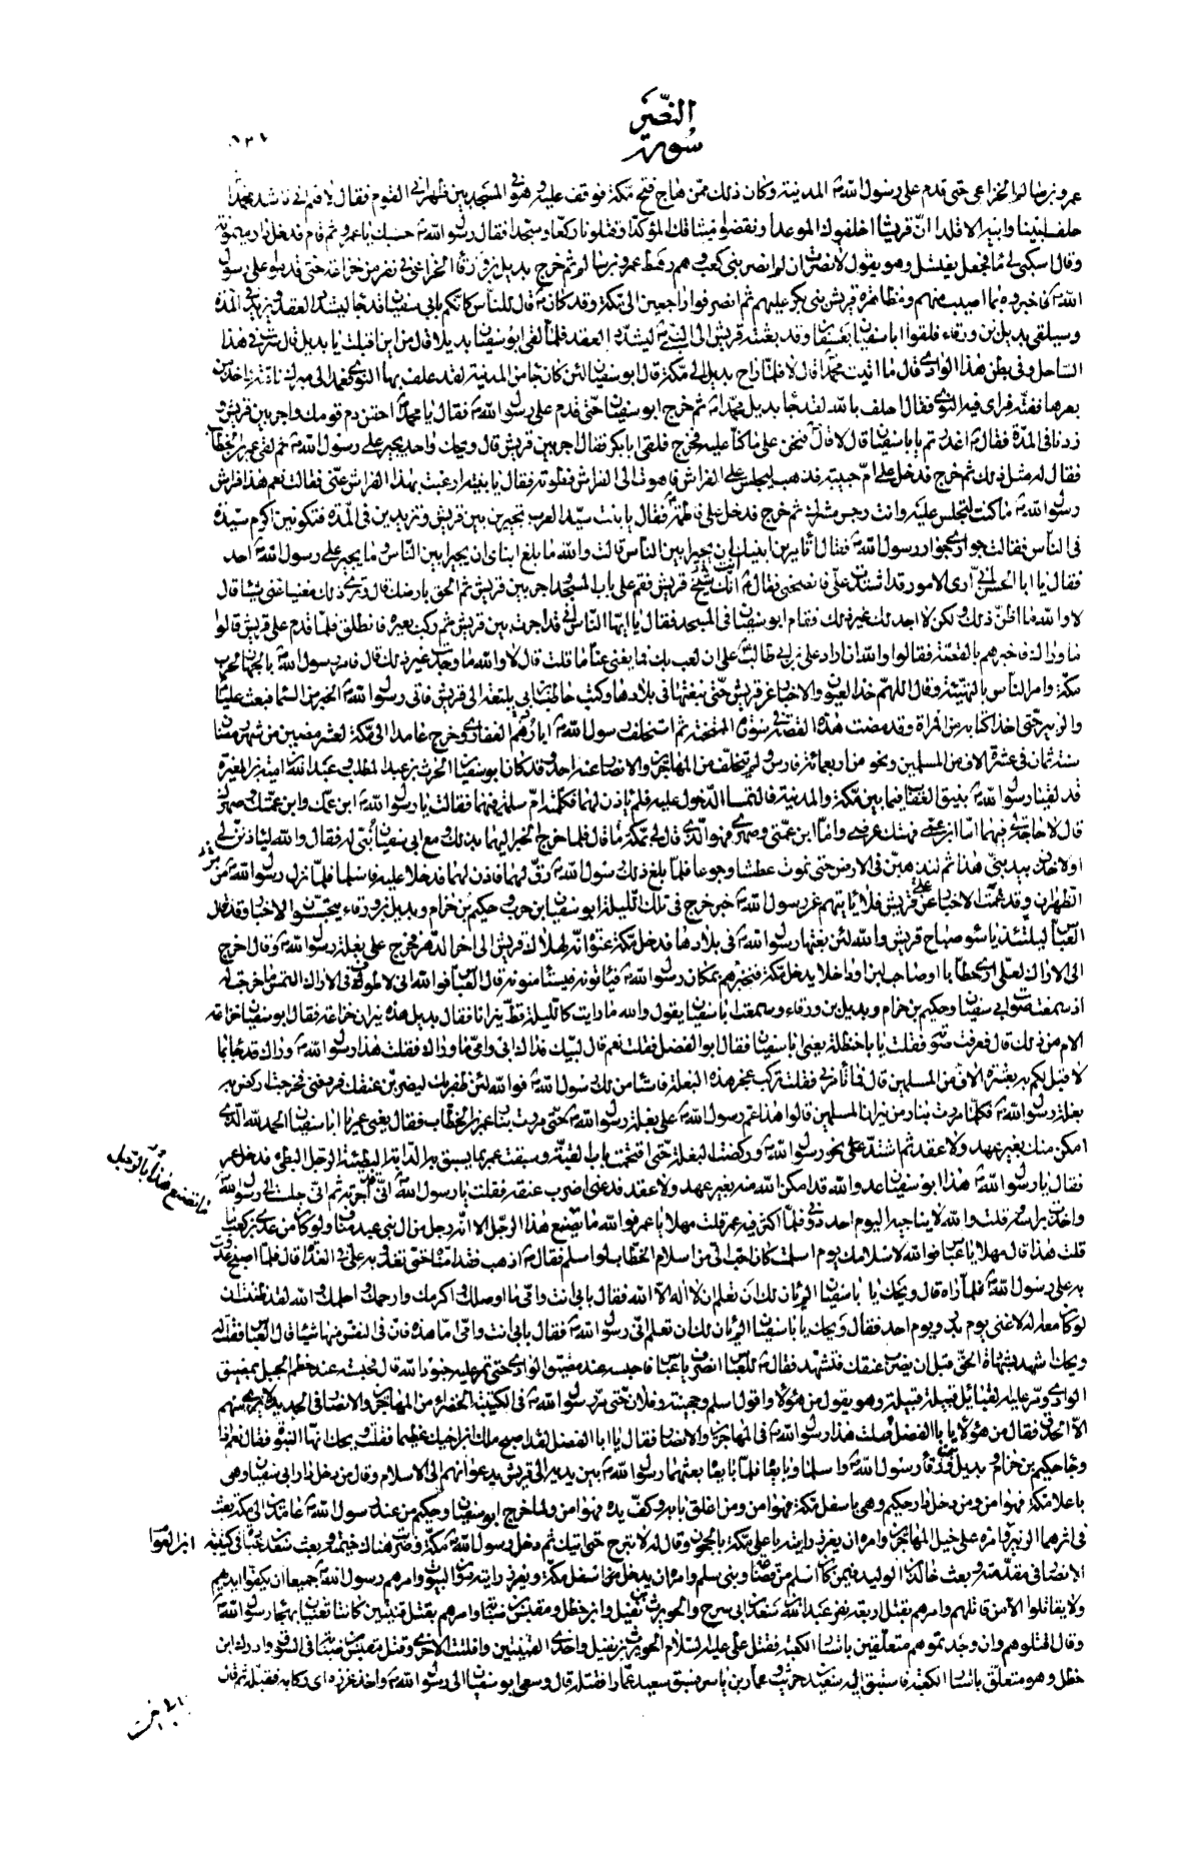 النصر
سورة
عمرو بن سالم الخزاعي حتى قدم على رسول الله ص المدينة وكان ذلك ممّن هاج فتح مكة فوقف عليه وهو في المسجد بين ظهراني القوم فقال لا همّ اني ناشد محمّدا
حلف ابينا وابيه الاتلدا انّ قريشا اخلفوك الموعدا ونقضوا ميثاقك المؤكّدا وقتلونا ركّعا وسجّدا فقال رسول الله ص حسبك يا عمرو ثم قام فدخل دار ميمونة
وقال اسكبي لي ماء فجعل يغتسل وهو يقول لا نصرت ان لم انصر بني كعب وهم رهط عمرو بن سالم ثم خرج بديل بن ورقاء الخزاعي في نفر من خزاعة حتى قدموا على رسول
الله ص فاخبروه بما اصيب منهم ومظاهرة قريش بني بكر عليهم ثم انصرفوا راجعين الى مكة وقد كان ص قال للناس كانّكم بابي سفيان قد جاء ليشدّد العقد ويزيد في المدّة
وسيلقى بديل بن ورقاء فلقوا ابا سفيان بعسفان وقد بعثته قريش الى النبي ص ليشدّد العقد فلمّا لقى ابو سفيان بديلا قال من اين اقبلت يا بديل قال سرت في هذا
الساحل وفي بطن هذا الوادي قال ما اتيت محمّدا قال لا فلمّا راح بديل الى مكة قال ابو سفيان لئن كان جاء من المدينة لقد علف بها النوى فعمد الى مبرك ناقته فاخذ من
بعرها ففتّه فراى فيه النوى فقال احلف بالله لقد جاء بديل محمّدا ص ثم خرج ابو سفيان حتى قدم على رسول الله ص فقال يا محمّد احقن دم قومك واجر بين قريش و
زدنا في المدّة فقال ص اغدرتم يا ابا سفيان قال لا قال فنحن على ما كنّا عليه فخرج فلقى ابا بكر فقال اجر بين قريش قال ويحك واحد يجير على رسول الله ص ثم لقى عمر بن الخطاب
فقال له مثل ذلك ثم خرج فدخل على امّ حبيبة فذهب ليجلس على الفراش فاهوت الى الفراش فطوته فقال يا بنيّة ارغبت بهذا الفراش عنّي فقالت نعم هذا فراش
رسول الله ص ما كنت لتجلس عليه وانت رجس مشرك ثم خرج فدخل على فاطمة فقال يا بنت سيّد العرب تجيرين بين قريش وتزيدين في المدّة فتكونين اكرم سيّدة
في الناس فقالت جواري جوار رسول الله ص فقال أتأمرين ابنيك ان يجيرا بين الناس قالت والله ما بلغ ابناي ان يجيرا بين الناس وما يجير على رسول الله ص احد
فقال يا ابا الحسن اني ارى الامور قد اشتدّت علي فانصحني فقال ص انّك شيخ قريش فقم على باب المسجد واجر بين قريش ثم الحق بارضك قال وترى ذلك مغنيا عنّي شيئا قال
لا والله ما اظنّ ذلك ولكن لا اجد لك غير ذلك فقام ابو سفيان في المسجد فقال يا ايّها الناس اني قد اجرت بين قريش ثم ركب بعيره فانطلق فلما قدم على قريش قالوا
ما وراك فاخبرهم بالقصّة فقالوا والله ان زاد علي بن ابي طالب على ان لعب بك فما يغني عنّا ما قلت قال لا والله ما وجدت غير ذلك قال فامر رسول الله ص بالجهاز لحرب
مكة وامر الناس بالتهيئة وقال اللهم خذ العيون والاخبار عن قريش حتى نبغتها في بلادها وكتب حاطب بن ابي بلتعة الى قريش فاتى رسول الله ص الخبر من السماء فبعث عليّا
والزبير حتى اخذا كتابه من المراة وقد مضت هذه القصة في سورة الممتحنة ثم استخلف رسول الله ص ابا رهم الغفاري وخرج عامدا الى مكة لعشر مضين من شهر رمضان
سنة ثمان في عشرة الاف من المسلمين ونحو من اربعمائة فارس ولم يتخلّف من المهاجرين والانصار عنه احد وقد كان ابو سفيان بن الحرث بن عبد المطلب وعبد الله بن امية بن المغيرة
قد لقيا رسول الله ص بنيق العقاب فيما بين مكة والمدينة فالتمسا الدخول عليه فلم ياذن لهما فكلّمته امّ سلمة فيهما فقالت يا رسول الله ص ابن عمّك وابن عمّتك وصهرك
قال لا حاجة لي فيهما امّا ابن عمّي فهتك عرضي وامّا ابن عمّتي وصهري فهو الذي قال لي بمكة ما قال فلما خرج الخبر اليهما بذلك ومع ابي سفيان بنيّ له فقال والله لياذننّ لي
او لاخذنّ بيد بنيّ هذا ثم لنذهبنّ في الارض حتى نموت عطشا وجوعا فلمّا بلغ ذلك رسول الله ص رقّ لهما فاذن لهما فدخلا عليه فاسلما فلمّا نزل رسول الله ص مرّ
الظهران وقد غمّت الاخبار عن قريش فلا ياتيهم عن رسول الله ص خبر خرج في تلك الليلة ابو سفيان بن حرب وحكيم بن حزام وبديل بن ورقاء يتجسّسون الاخبار وقد قال
العبّاس ليلتئذ يا سوء صباح قريش والله لئن بغتها رسول الله ص في بلادها فدخل مكة عنوة انّه لهلاك قريش الى اخر الدهر فخرج على بغلة رسول الله ص وقال اخرج
الى الاراك لعلّي ارى حطّابا او صاحب لبن او داخلا يدخل مكة فيخبرهم بمكان رسول الله ص فياتونه فيستامنونه قال العبّاس فوالله اني لاطوف في الاراك التمس ما خرجت له
اذ سمعت صوت ابي سفيان وحكيم بن حزام وبديل بن ورقاء وسمعت ابا سفيان يقول والله ما رايت كالليلة قطّ نيرانا فقال بديل هذه نيران خزاعة فقال ابو سفيان خزاعة
الأم من ذلك قال فعرفت صوته فقلت يا ابا حنظلة يعني ابا سفيان فقال ابو الفضل فقلت نعم قال لبّيك فداك ابي وامّي ما وراك فقلت هذا رسول الله ص وراك قد جاء بما
لا قبل لكم به بعشرة الاف من المسلمين قال فما تامرني فقلت تركب عجز هذه البغلة فاستامن لك رسول الله ص فوالله لئن ظفر بك ليضربنّ عنقك فردفني فخرجت اركض به
بغلة رسول الله ص فكلّما مررت بنار من نيران المسلمين قالوا هذا عمّ رسول الله ص على بغلة رسول الله ص حتى مررت بنار عمر بن الخطاب فقال يعني عمر يا ابا سفيان الحمد لله الذي
امكن منك بغير عهد ولا عقد ثم اشتدّ على نحو رسول الله ص وركضت البغلة حتى اقتحمت باب القبّة وسبقت عمر بما يسبق به الدابّة البطيئة الرجل البطيء فدخل عمر
فقال يا رسول الله ص هذا ابو سفيان عدوّ الله قد امكن الله منه بغير عهد ولا عقد فدعني اضرب عنقه فقلت يا رسول الله ص انّي قد اجرته ثم اني جلست الى رسول الله ص
ما تصنع هذا بالرجل
واخذت براسه وقلت والله لا يناجيه اليوم احد دوني فلمّا اكثر فيه عمر قلت مهلا يا عمر فوالله ما تصنع هذا الرجل الا انّه رجل من ال بني عبد مناف ولو كان من عدي بن كعب ما
قلت هذا قال مهلا يا عبّاس فوالله لاسلامك يوم اسلمت كان احبّ الي من اسلام الخطاب لو اسلم فقال ص اذهب فقد امنّاه حتى تغدو به علي في الغداة قال فلمّا اصبح غدوت
به على رسول الله ص فلمّا راه قال ويحك يا ابا سفيان الم يان لك ان تعلم ان لا اله الا الله فقال بابي انت وامّي ما اوصلك واكرمك وارحمك واحلمك والله لقد ظننت ان
لو كان معه اله لاغنى يوم بدر ويوم احد فقال ويحك يا ابا سفيان الم يان لك ان تعلم اني رسول الله ص فقال بابي انت وامّي امّا هذه فانّ في النفس منها شيئا قال العبّاس فقلت له
ويحك اشهد بشهادة الحق قبل ان يضرب عنقك فتشهّد فقال ص للعبّاس انصرف يا عبّاس فاحبسه عند مضيق الوادي حتى تمرّ عليه جنود الله قال فحبسته عند خطم الجبل بمضيق
الوادي ومرّ عليه القبائل قبيلة قبيلة وهو يقول من هؤلاء واقول اسلم وجهينة وفلان حتى مرّ رسول الله ص في الكتيبة الخضراء من المهاجرين والانصار في الحديد لا يرى منهم
الا الحدق فقال من هؤلاء يا ابا الفضل قلت هذا رسول الله ص في المهاجرين والانصار فقال يا ابا الفضل لقد اصبح ملك ابن اخيك عظيما فقلت ويحك انّها النبوّة فقال نعم اذا
وجاء حكيم بن حزام وبديل بن ورقاء رسول الله ص واسلما وبايعا فلمّا بايعا بعثهما رسول الله ص بين يديه الى قريش يدعوانهم الى الاسلام وقال من دخل دار ابي سفيان وهي
باعلا مكة فهو امن ومن دخل دار حكيم وهي باسفل مكة فهو امن ومن اغلق بابه وكفّ يده فهو امن ولمّا خرج ابو سفيان وحكيم من عند رسول الله ص عامدين الى مكة بعث
في اثرهما الزبير بن العوّام وامّره على خيل المهاجرين وامره ان يغرز رايته باعلى مكة بالحجون وقال له لا تبرح حتى اتيك ثم دخل رسول الله ص مكة وضربت هناك خيمته وبعث سعد بن عبادة في كتيبة
الانصار في مقدّمته وبعث خالد بن الوليد فيمن كان اسلم من قضاعة وبني سليم وامره ان يدخل من اسفل مكة ويغرز رايته دون البيوت وامرهم رسول الله ص جميعا ان يكفّوا ايديهم
ولا يقاتلوا الا من قاتلهم وامرهم بقتل اربعة نفر عبد الله بن سعد بن ابي سرح والحويرث بن نفيل وابن خطل ومقبس بن صبابة وامرهم بقتل قينتين كانتا تغنّيان بهجاء رسول الله ص
وقال اقتلوهم وان وجدتموهم متعلّقين باستار الكعبة فقتل علي عليه السلام الحويرث بن نفيل واحدى القينتين وافلتت الاخرى وقتل مقبس بن صبابة في السوق وادرك ابن
خطل وهو متعلق باستار الكعبة فاستبق اليه سعيد بن حريث وعمار بن ياسر فسبق سعيد عمّارا فقتله قال وسعى ابو سفيان الى رسول الله ص واخذ غرزه اي ركابه فقبّله ثم قال